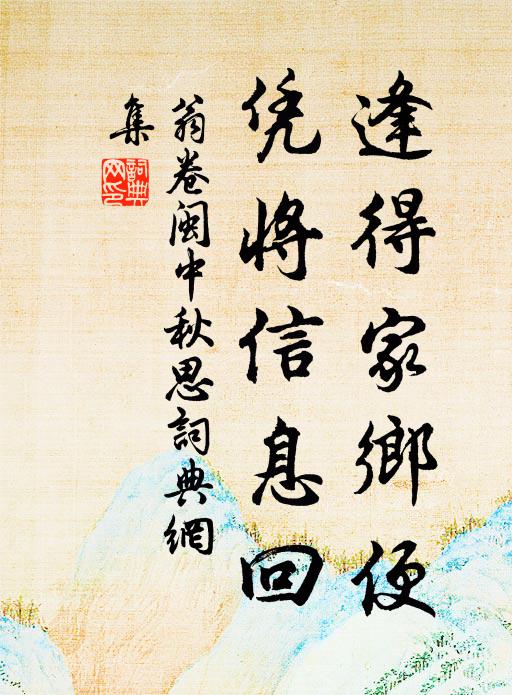 逢得家鄉便
凭將信息回
翁卷閩中秋思詞典網
集
詞典網印